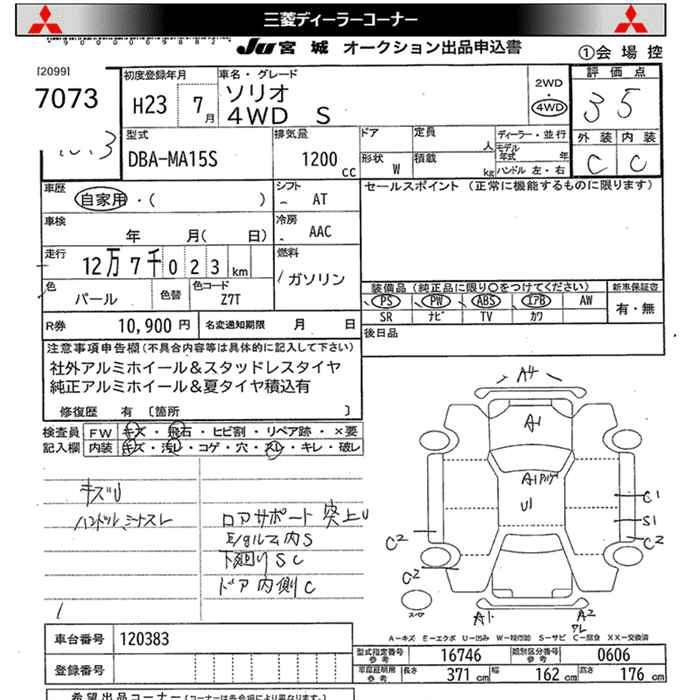 三菱ディーラーコーナー
JU 宮城 オークション出品申込書
①会場控
[2099]
7073
初度登録年月
H23 7月
車名・グレード
ソリオ
4WD S
2WD
・
4WD
評価点
3 5
外装 内装
C C
型式
DBA-MA15S
排気量
1200 CC
ドア
定員
人
形状 W
積載
kg
ディーラー・並行
モデル年式 年
ハンドル 左・右
車歴
自家用・( )
シフト
AT
セールスポイント (正常に機能するものに限ります)
車検
年 月( 日)
冷房
AAC
走行
12万7千023km
燃料
ガソリン
色
パール
色替
色コード
Z7T
装備品(純正品に限り○をつけてください)
新車保証書
PS PW ABS エアB AW
SR ナビ TV カワ
有・無
R券 10,900円
名変通知期限 月 日
後日品
注意事項申告欄(不具合内容等は具体的に記入して下さい)
社外アルミホイール&スタッドレスタイヤ
純正アルミホイール&夏タイヤ積込有
修復歴 有 〔箇所 〕
検査員
記入欄
FW キズ・飛石・ヒビ割・リペア跡・×要
内装 キズ・汚レ・コゲ・穴・スレ・キレ・破レ
キズU
ロアサポート突上U
下廻りSC
ドア内側C
A4
A1
U1
C1
S1
C2
C2
C2
A1
A2
スペア
A-キズ E-エクボ U-凹み W-補修跡 S-サビ C-腐食 XX-交換済
車台番号 120383
登録番号
型式指定番号 参考 16746
類別区分番号 参考 0606
車庫証明用 参考 長さ 371 cm 幅 162 cm 高さ 176 cm
希望出品コーナー